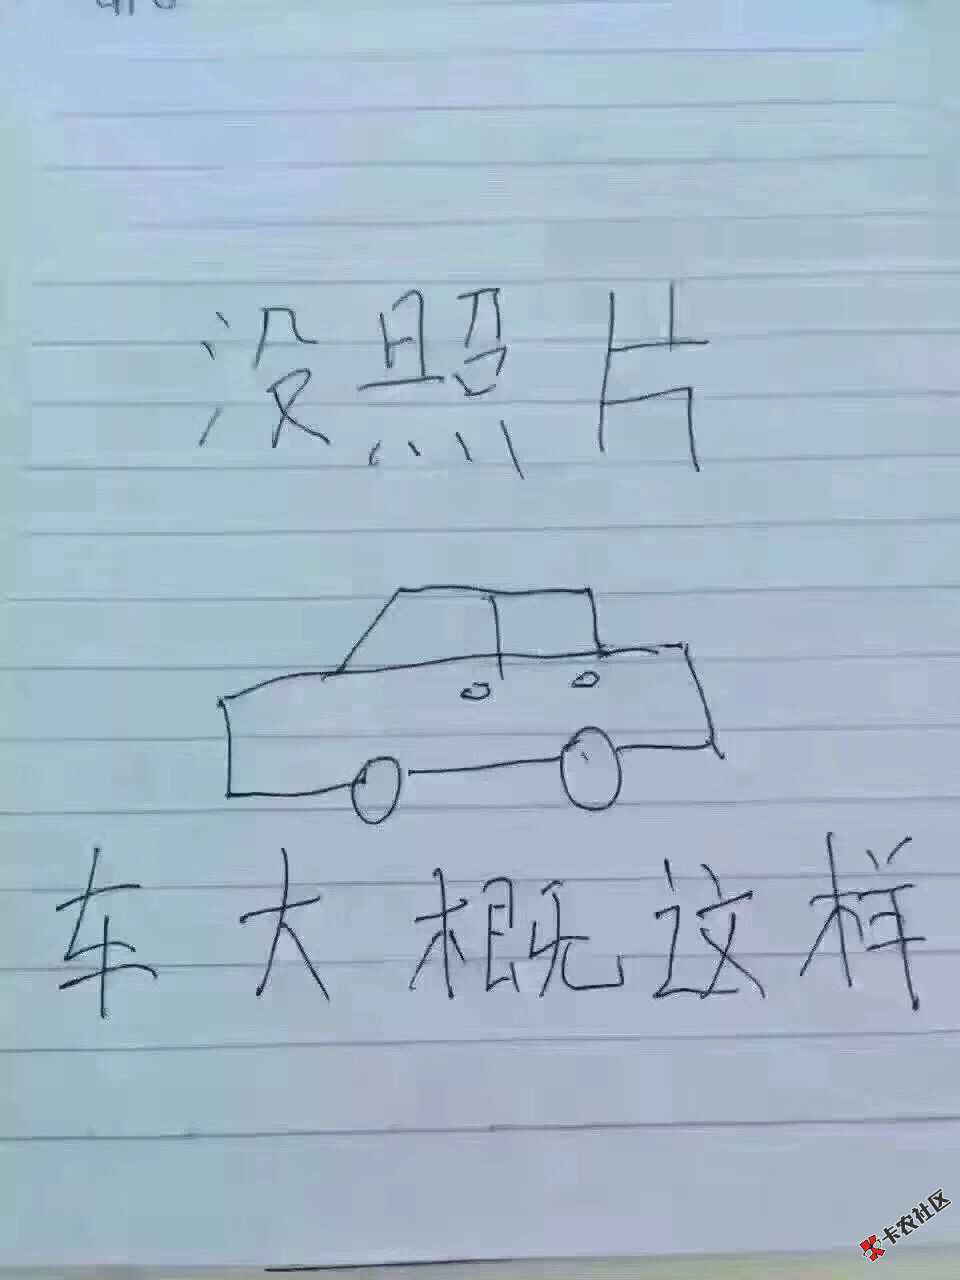 没照片
车大概这样
卡农社区